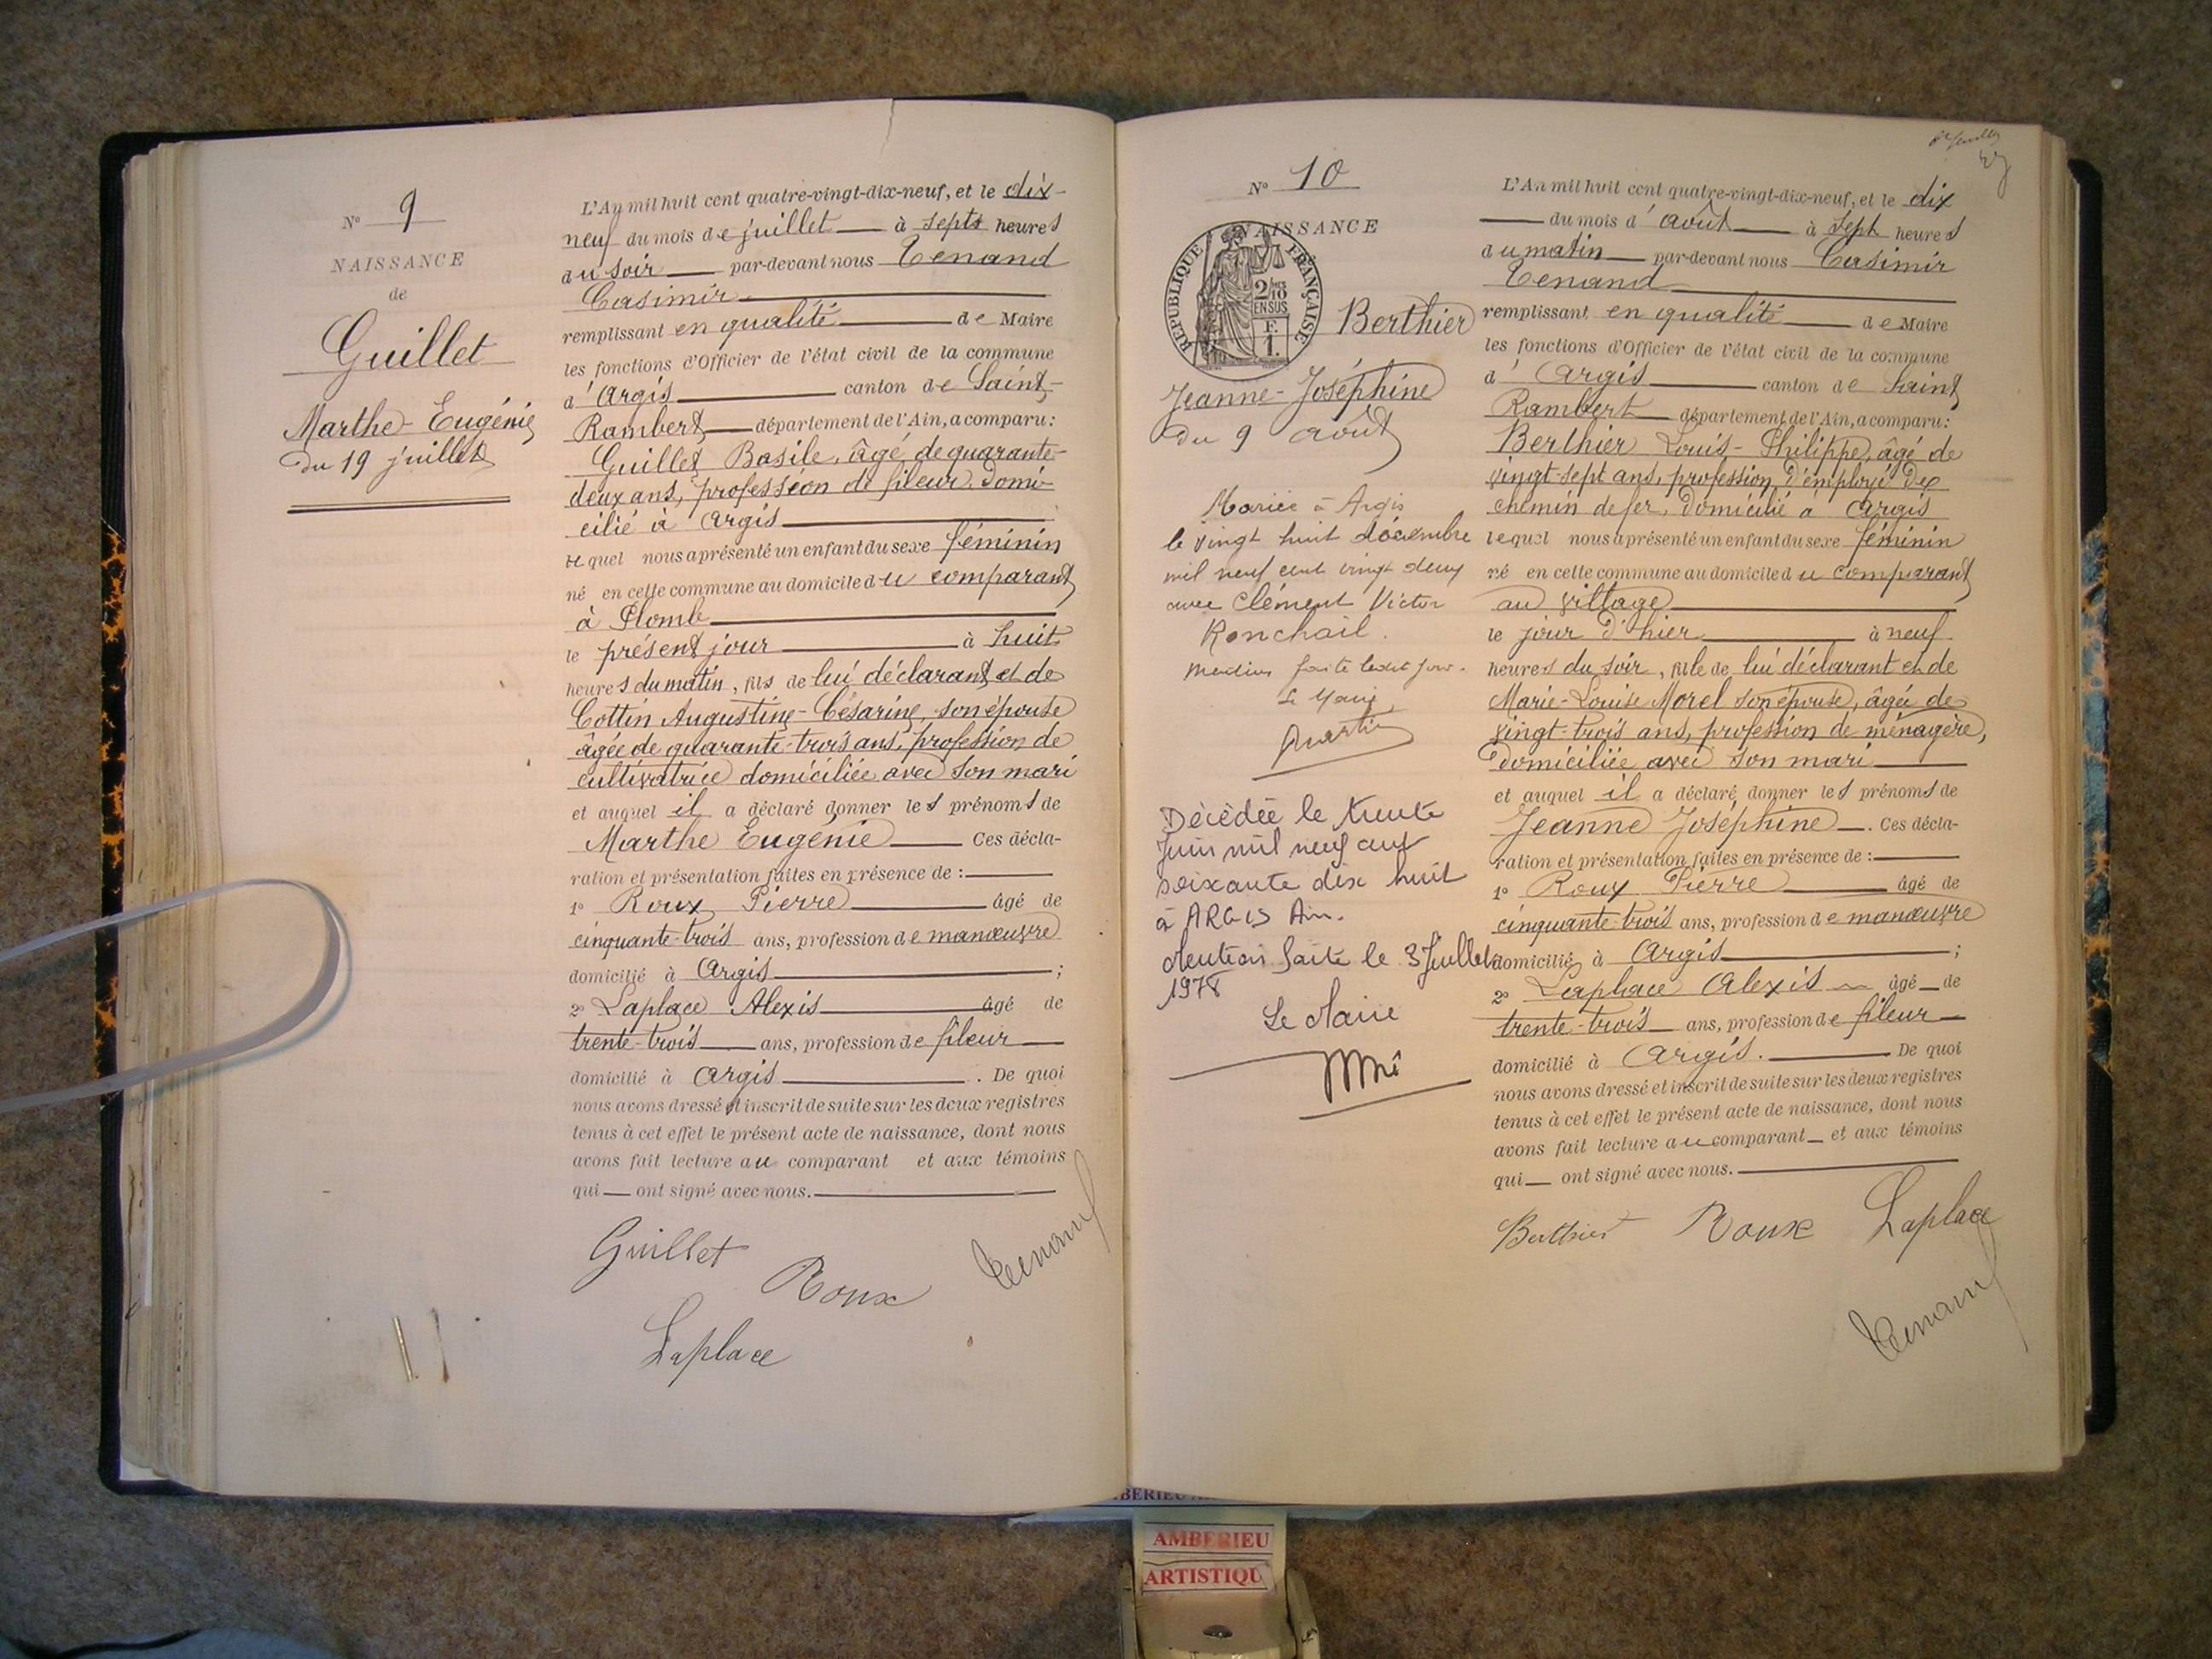 N° 9
NAISSANCE
de
Guillet
Marthe-Eugénie
Du 19 juillet
L'An mil huit cent quatre-vingt-dix-neuf, et le dix-
neuf du mois de juillet à sept heures
du soir par-devant nous Tenand
Casimir
remplissant en qualité de Maire
les fonctions d'Officier de l'état civil de la commune
d'Argis canton de Saint-
Rambert département de l'Ain, a comparu:
Guillet Basile, âgé de quarante-
deux ans, profession de fileur, domi-
cilié à Argis
lequel nous a présenté un enfant du sexe féminin
né en cette commune au domicile du comparant
à Plomb
le présent jour à huit
heures du matin, fils de lui déclarant et de
Cottin Augustine-Césarine, son épouse
âgée de quarante-trois ans, profession de
cultivatrice domiciliée avec son mari
et auquel il a déclaré donner les prénoms de
Marthe Eugénie Ces décla-
ration et présentation faites en présence de :
1° Roux Pierre âgé de
cinquante-trois ans, profession de manœuvre
domicilié à Argis ;
2° Laplace Alexis âgé de
trente-trois ans, profession de fileur
domicilié à Argis . De quoi
nous avons dressé et inscrit de suite sur les deux registres
tenus à cet effet le présent acte de naissance, dont nous
avons fait lecture au comparant et aux témoins
qui ont signé avec nous.
Guillet
Roux
Tenand
Laplace
N° 10
NAISSANCE
REPUBLIQUE FRANÇAISE
2/10
EN SUS
F.
1.
Berthier
Jeanne-Joséphine
Du 9 août
Mariée à Argis
le vingt huit décembre
mil neuf cent vingt deux
avec Clément Victor
Ronchail.
Mention faite ledit jour.
Le Maire
Décédée le trente
Juin mil neuf cent
soixante dix huit
à ARGIS Ain.
Mention faite le 3 Juillet
1978
Le Maire
L'An mil huit cent quatre-vingt-dix-neuf, et le dix
du mois d'août à sept heures
du matin par-devant nous Casimir
Tenand
remplissant en qualité de Maire
les fonctions d'Officier de l'état civil de la commune
d'Argis canton de Saint
Rambert département de l'Ain, a comparu:
Berthier Louis-Philippe, âgé de
vingt-sept ans, profession d'employé de
chemin de fer, domicilié à Argis
lequel nous a présenté un enfant du sexe féminin
né en cette commune au domicile du comparant
au village
le jour d'hier à neuf
heures du soir, fille de lui déclarant et de
Marie-Louise Morel son épouse, âgée de
vingt-trois ans, profession de ménagère,
domiciliée avec son mari
et auquel il a déclaré donner les prénoms de
Jeanne Joséphine . Ces décla-
ration et présentation faites en présence de :
1° Roux Pierre âgé de
cinquante-trois ans, profession de manœuvre
domicilié à Argis ;
2° Laplace Alexis âgé de
trente-trois ans, profession de fileur
domicilié à Argis. De quoi
nous avons dressé et inscrit de suite sur les deux registres
tenus à cet effet le présent acte de naissance, dont nous
avons fait lecture au comparant et aux témoins
qui ont signé avec nous.
Berthier Roux Laplace
Tenand
AMBERIEU
ARTISTIQU